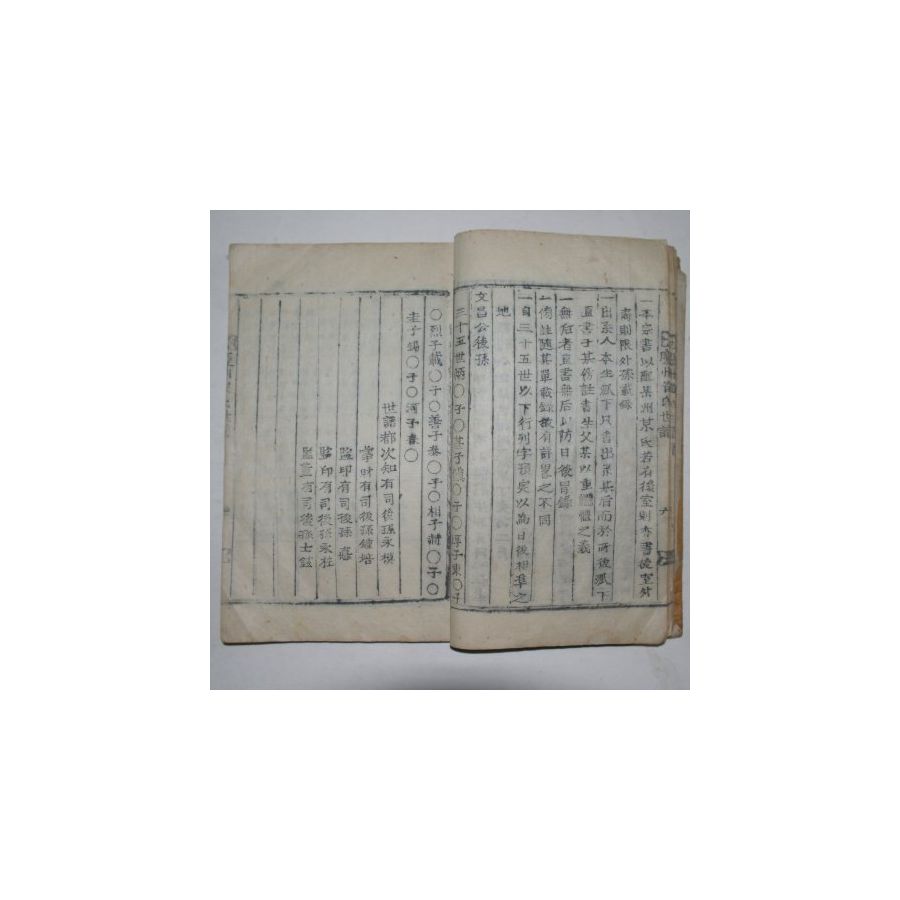 一本宗書以配某州某氏若有後室則亦書後室外
裔則限外孫載錄
一出系人本生派下只書出系某后而於所後派下
直書子某傍註書生父某以重體之義
一無后者直書無后以防日後冒錄
一傍註隨其單載錄故有詳畧之不同
一自三十五世以下行列字預定以爲日後相準之
地
文昌公後孫
三十五世 〇子〇 子 〇子〇 子東〇子
〇烈子載〇子〇善子泰〇子〇相子 〇子〇
老子錫〇子〇河子春〇
世譜都次知有司後孫永
掌財有司後孫鍾培
監印有司後孫
監印有司後孫永柱
監 有司後孫士鉉
慶州 氏世譜